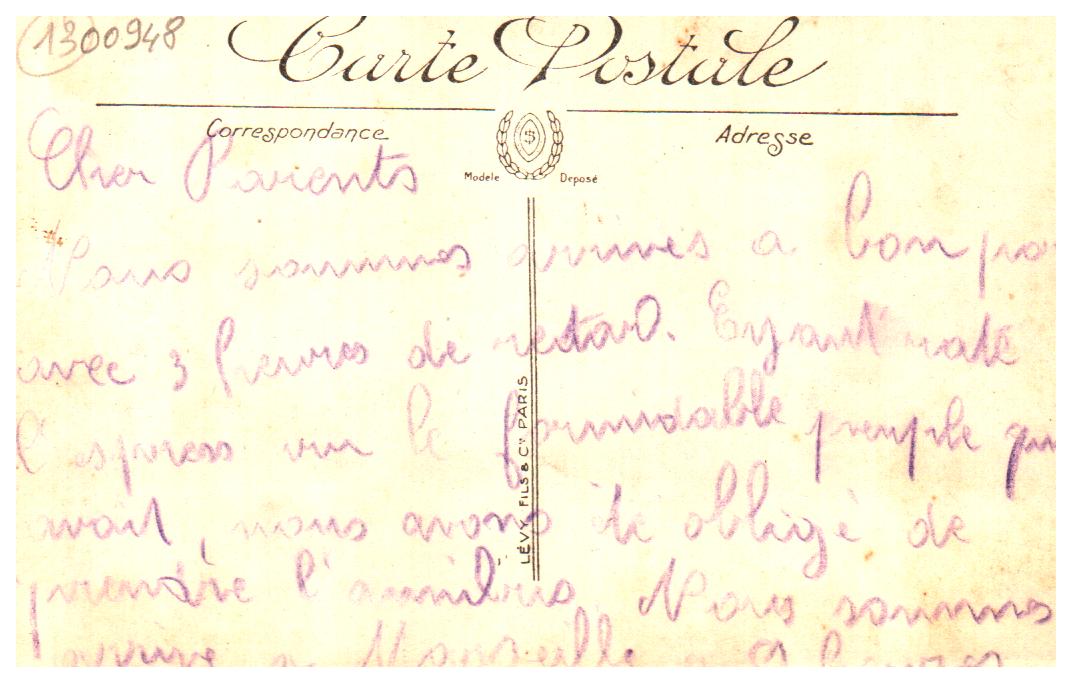 1300948
Carte Postale
Correspondance
Adresse
Modele Deposé
LÉVY FILS & Cie PARIS
Cher Parents
Nous sommes arrivés a bon po
avec 3 heures de retard. Eyant raté
l'espress vu le formidable peuple qu
avait, nous avons été obligé de
prendre l'omnibus. Nous sommes
arrivé a Marseille a heures